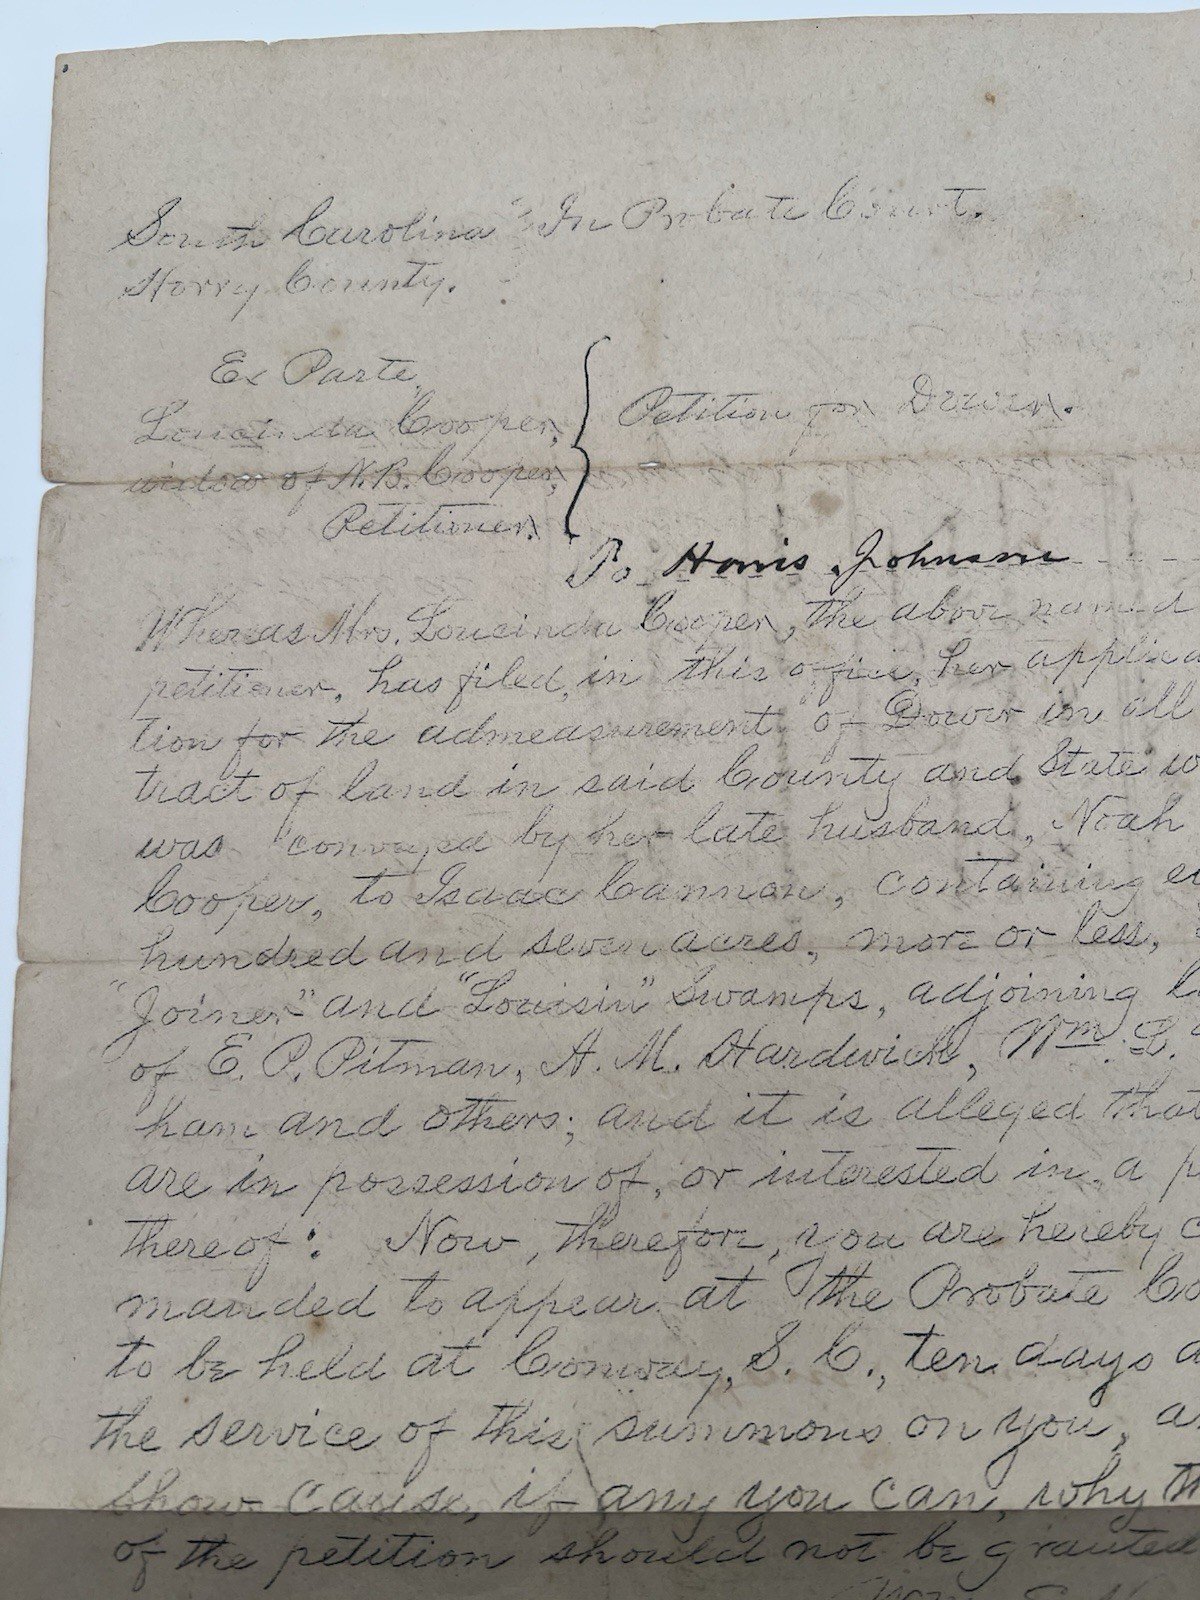 South Carolina In Probate Court.
Horry County.
Ex Parte
Loucinda Cooper,
widow of N.B. Cooper,
Petitioner.
Petition for Dower.
To Harris Johnson
Whereas Mrs. Loucinda Cooper, the above named
petitioner, has filed, in this office, her applica
tion for the admeasurement of Dower in all
tract of land in said County and State
was conveyed by her late husband, Noah
Cooper, to Isaac Cannon, containing
hundred and seven acres, more or less,
"Joiner" and "Louisin" Swamps, adjoining
of E. P. Pitman, A. M. Hardwick, Wm. L.
ham and others; and it is alleged that
are in possession of, or interested in, a
thereof: Now, therefore, you are hereby
manded to appear at the Probate
to be held at Conway, S. C., ten days
the service of this summons on you,
show cause, if any you can, why
of the petition should not be granted